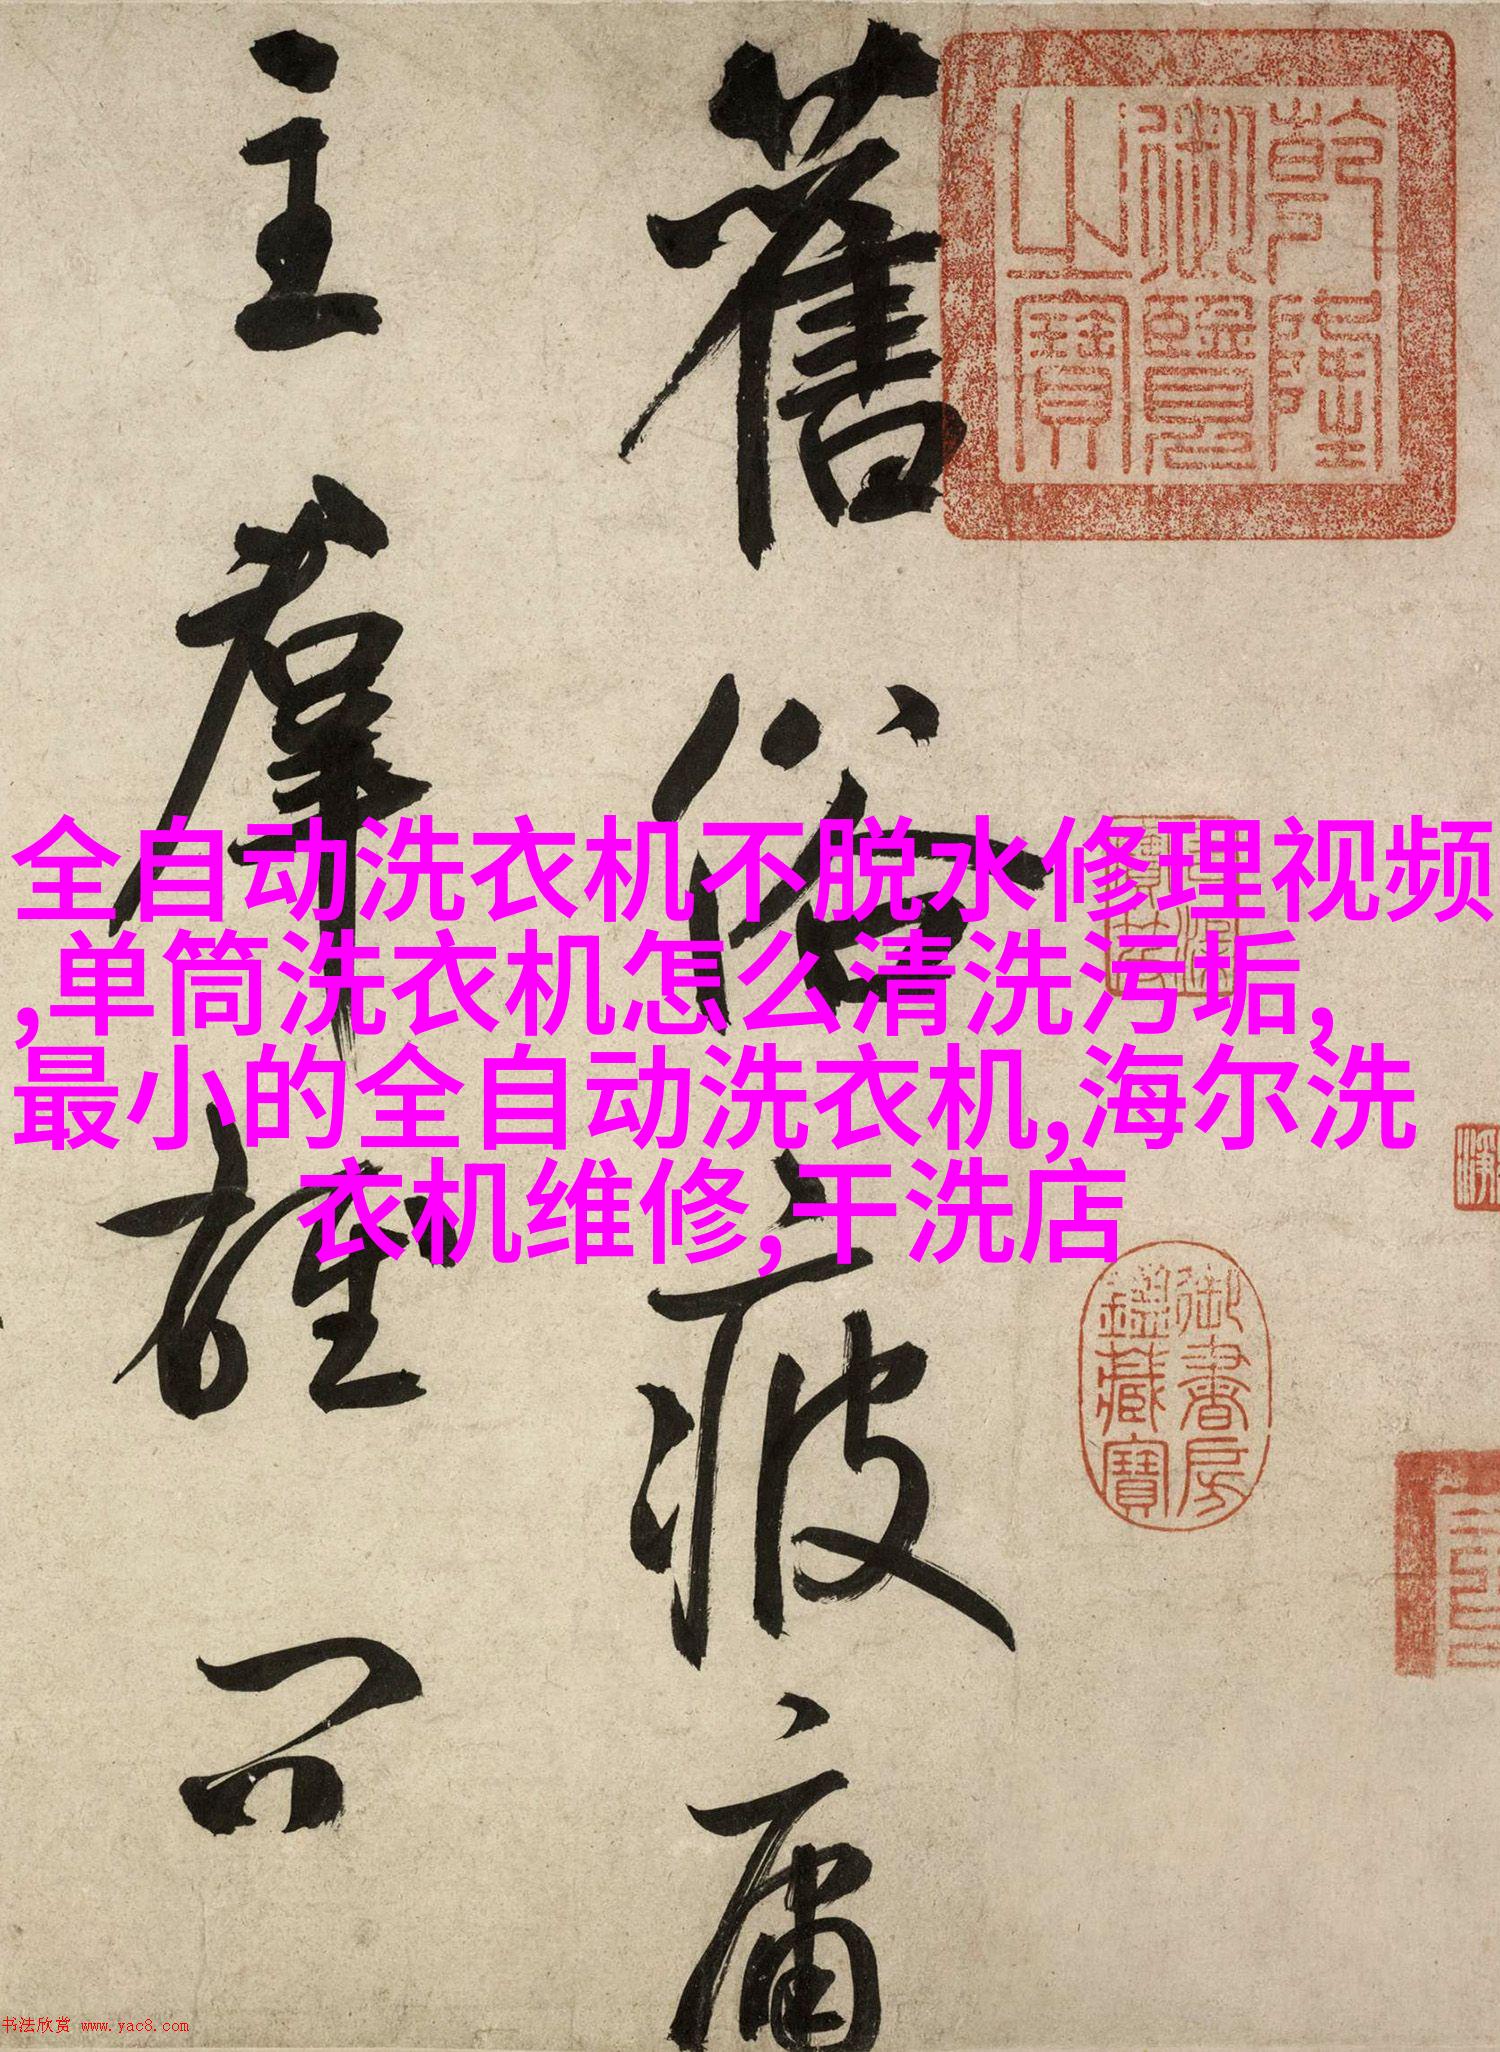 舊俗疲庸
主羣雄問
乾隆
御覽
之寶
御書房
鑑藏寶
全自动洗衣机不脱水修理视频
,单筒洗衣机怎么清洗污垢,
最小的全自动洗衣机,海尔洗
衣机维修,干洗店
书法欣赏 www.yac8.com